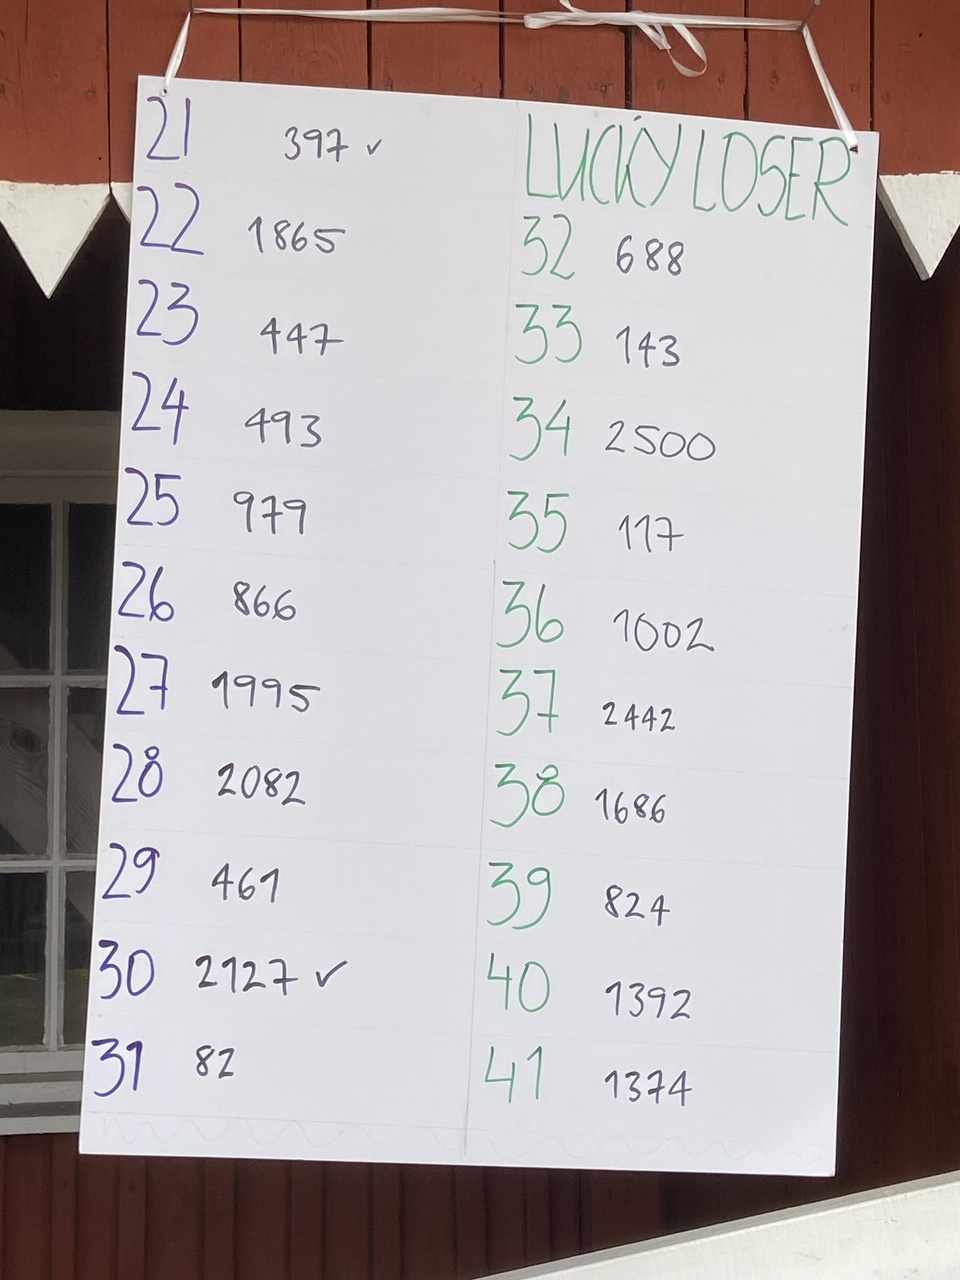 21 397 ✓
22 1865
23 447
24 493
25 979
26 866
27 1995
28 2082
29 461
30 2127 ✓
31 82
LUCKY LOSER
32 688
33 143
34 2500
35 117
36 1002
37 2442
38 1686
39 824
40 1392
41 1374